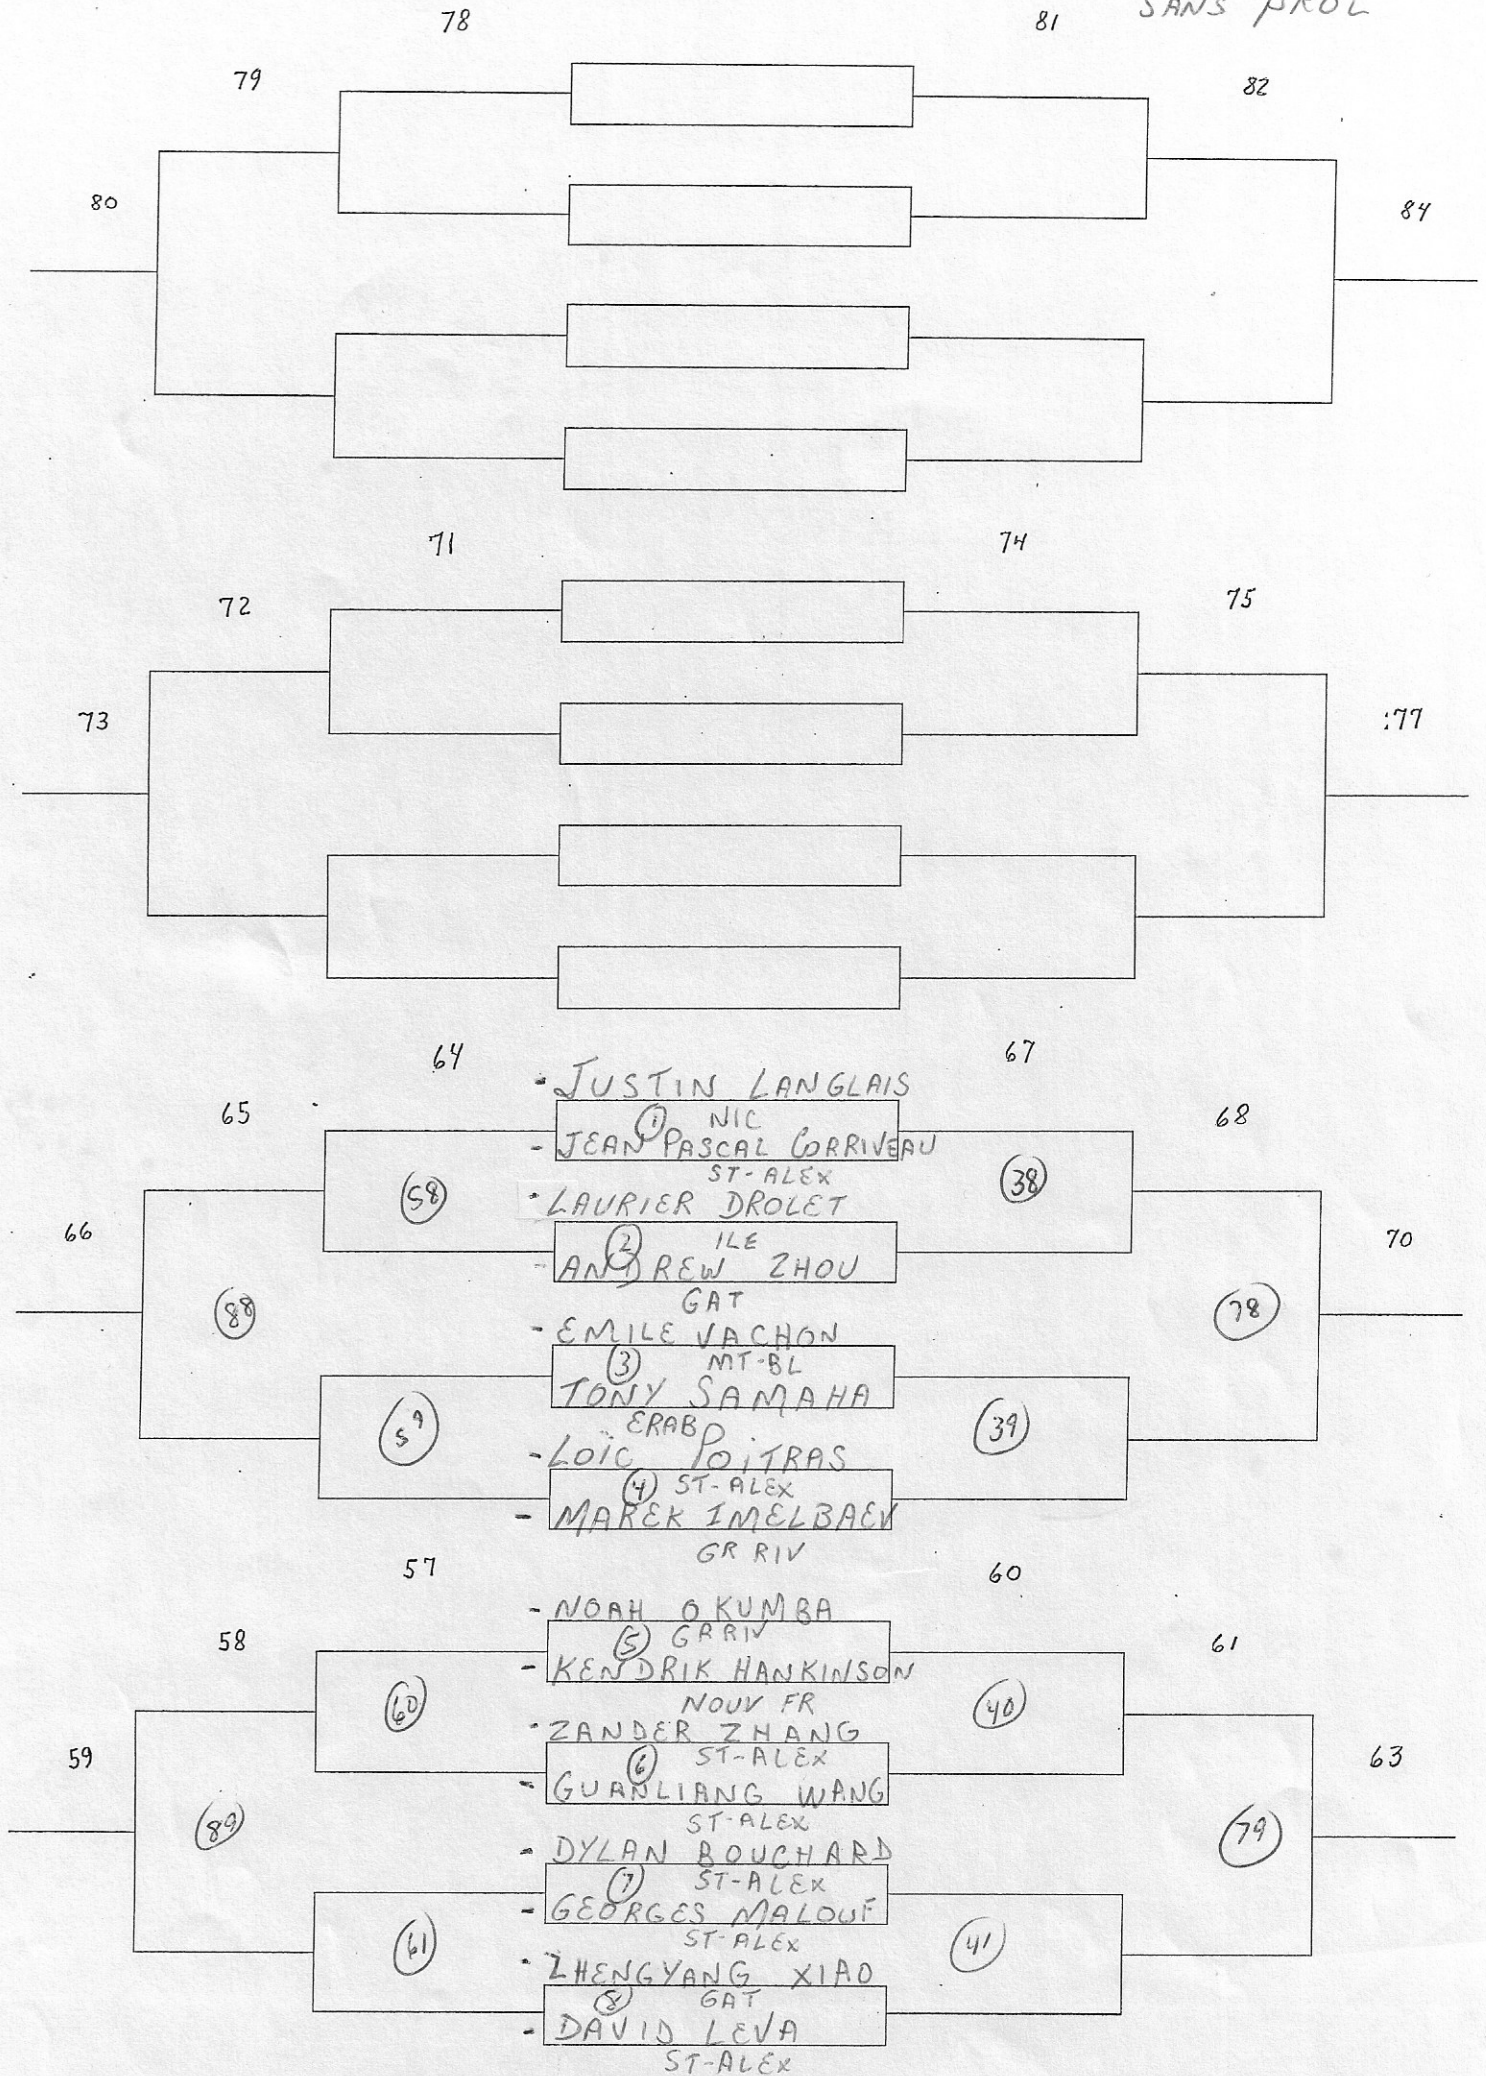 SANS PROL
78 81
79 82
80 84
71 74
72 75
73 77
64 67
- JUSTIN LANGLAIS
65 1 NIC 68
- JEAN PASCAL CORRIVEAU
ST-ALEX
58 38
- LAURIER DROLET
66 2 ILE 70
- ANDREW ZHOU
GAT
88 78
- EMILE VACHON
3 MT-BL
TONY SAMAHA
ERAB
59 39
- LOIC POITRAS
4 ST-ALEX
- MAREK IMELBAEV
GR RIV
57 60
- NOAH OKUMBA
58 5 GR RIV 61
- KENDRIK HANKINSON
NOUV FR
60 40
- ZANDER ZHANG
59 6 ST-ALEX 63
- GUANLIANG WANG
ST-ALEX
89 79
- DYLAN BOUCHARD
7 ST-ALEX
- GEORGES MALOUF
ST-ALEX
61 41
- ZHENGYANG XIAO
8 GAT
- DAVID LEVA
ST-ALEX